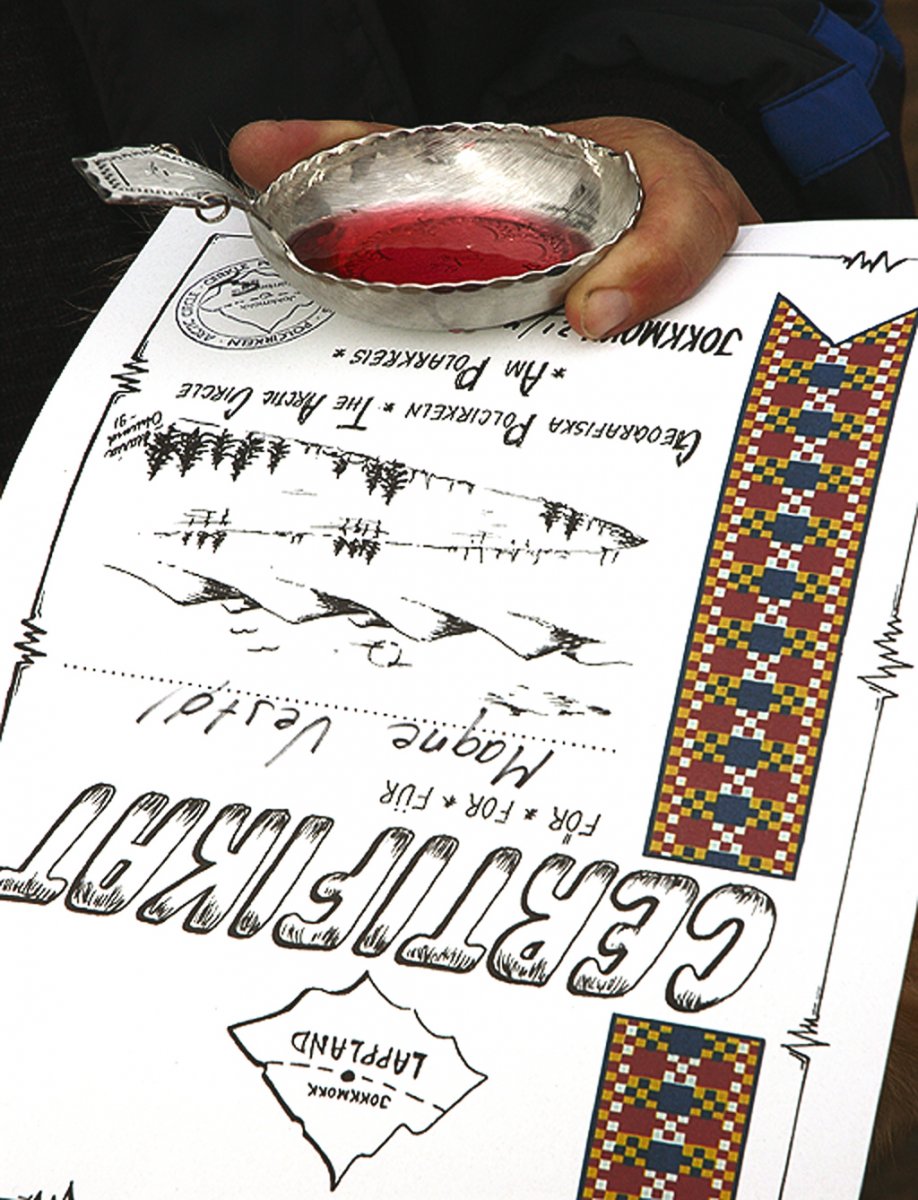 JOKKMOKK
LAPPLAND
CERTIFIKAT
FÖR * FOR * FÜR
Magne Vestøl
Maria
-91
GEOGRAFISKA POLCIRKELN * THE ARCTIC CIRCLE
* AM POLARKREIS *
JOKKMOKK
POLCIRKELN · ARCTIC CIRCLE ·
Jokkmokk